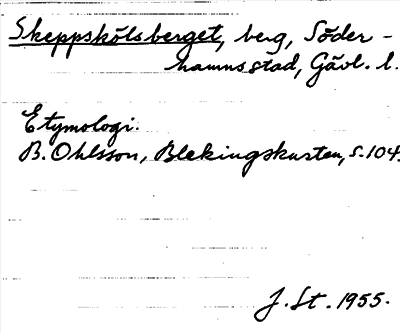 Skeppskölsberget, berg, Söder-
hamns stad, Gävl. l.
Etymologi:
B. Ohlsson, Blekingskusten, s. 104.
J. St. 1955.